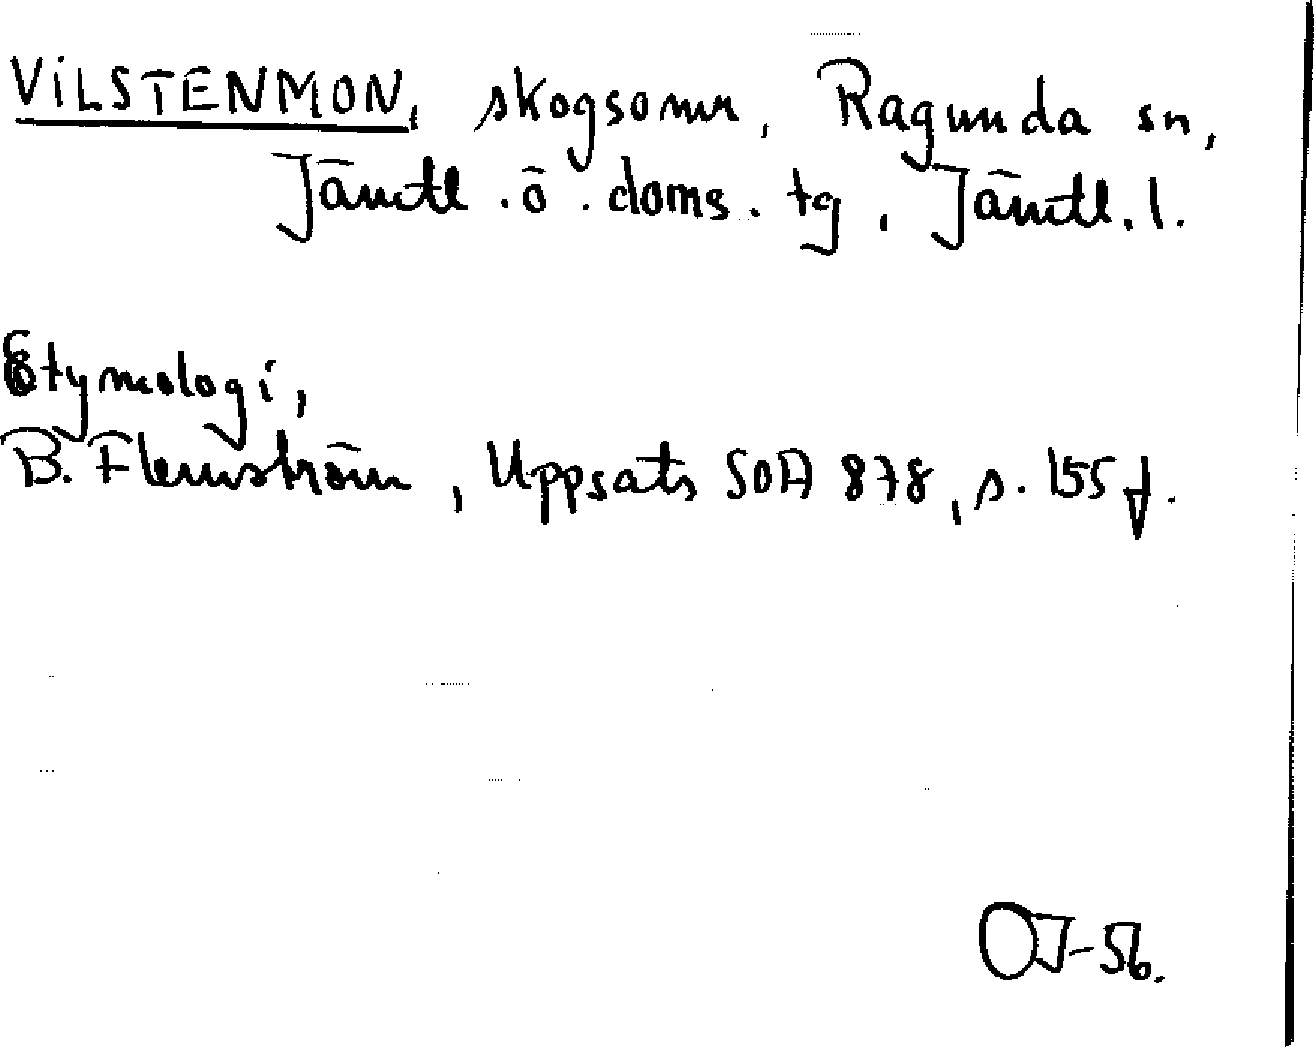 VILSTENMON, skogsomr, Ragunda sn,
Jämtl. ö. doms. tg, Jämtl. l.
Etymologi,
B. Flemström, Uppsats SOA 878, s. 155 f.
OJ-56.